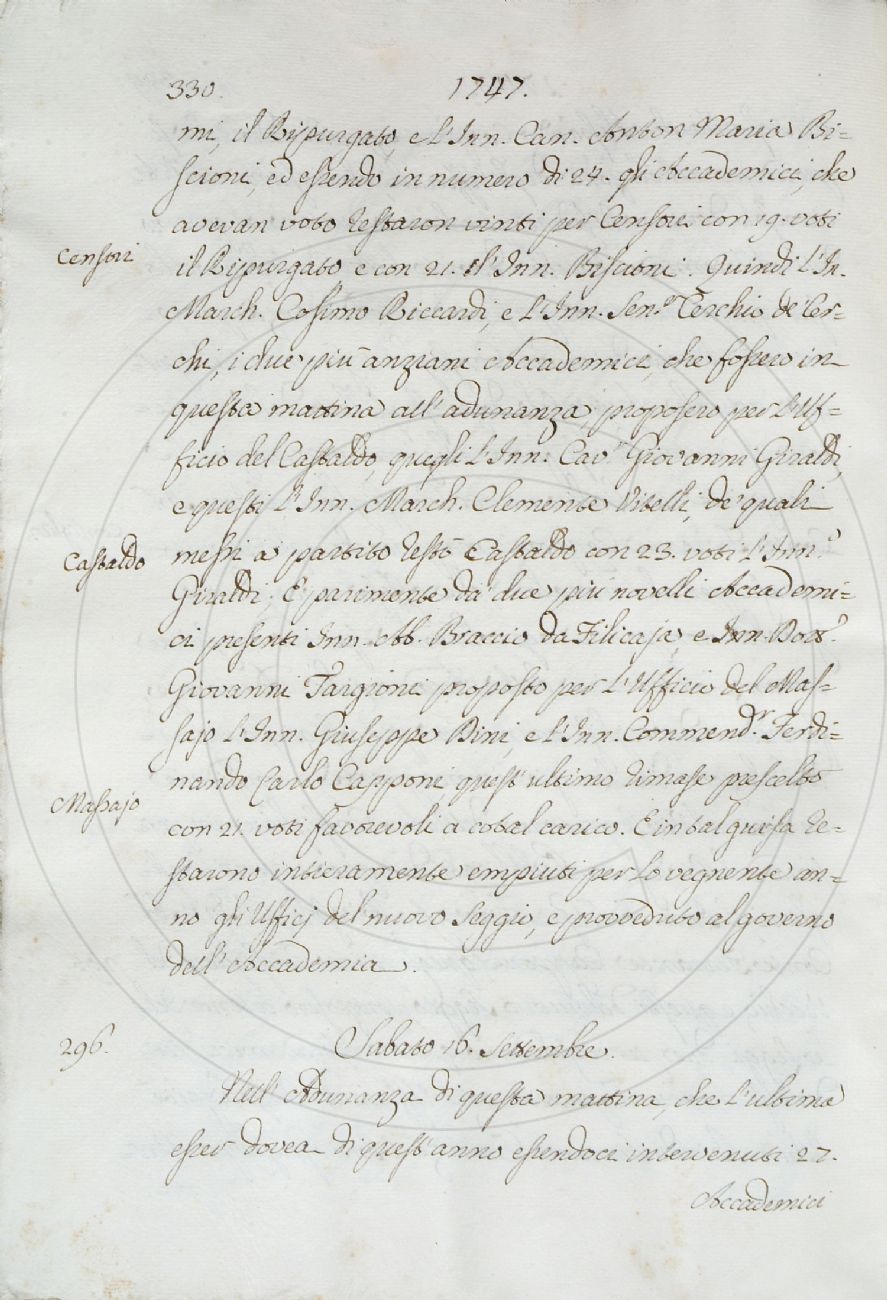 330. 1747.
mi, il Ripurgato, e l'Inn. Can. Anton Maria Bi=
scioni, ed essendo in numero di 24. gli Accademici, che
avevan voto restaron vinti per Censori con 19. voti
Censori
il Ripurgato e con 21. l'Inn. Biscioni. Quindi l'In.
March. Cosimo Riccardi, e l'Inn. Sen.e Cerchio de' Cer=
chi, i due più anziani Accademici, che fossero in
questa mattina all'adunanza, proposero per l'Uf=
ficio del Castaldo, quegli l'Inn. Cav.r Giovanni Giraldi,
e questi l'Inn. March. Clemente Vitelli, de' quali
Castaldo
messi a partito restò Castaldo con 23. voti l'Inn.o
Giraldi; E parimente da' due più novelli Accademi=
ci presenti Inn. Ab. Braccio da Filicaja, e Inn. Dott.r
Giovanni Targioni proposto per l'Ufficio del Mas=
sajo l'Inn. Giuseppe Bini, e l'Inn. Commend.r Ferdi=
nando Carlo Capponi quest'ultimo rimase prescelto
Massajo
con 21. voti favorevoli a cotal carico. E in tal guisa re=
starono intieramente empiuti per lo vegnente an=
no gli Uffici del nuovo Seggio, e provveduto al governo
dell'Accademia.
296. Sabato 16. Settembre.
Nell'Adunanza di questa mattina, che l'ultima
esser dovea di quest'anno essendoci intervenuti 27.
Accademici